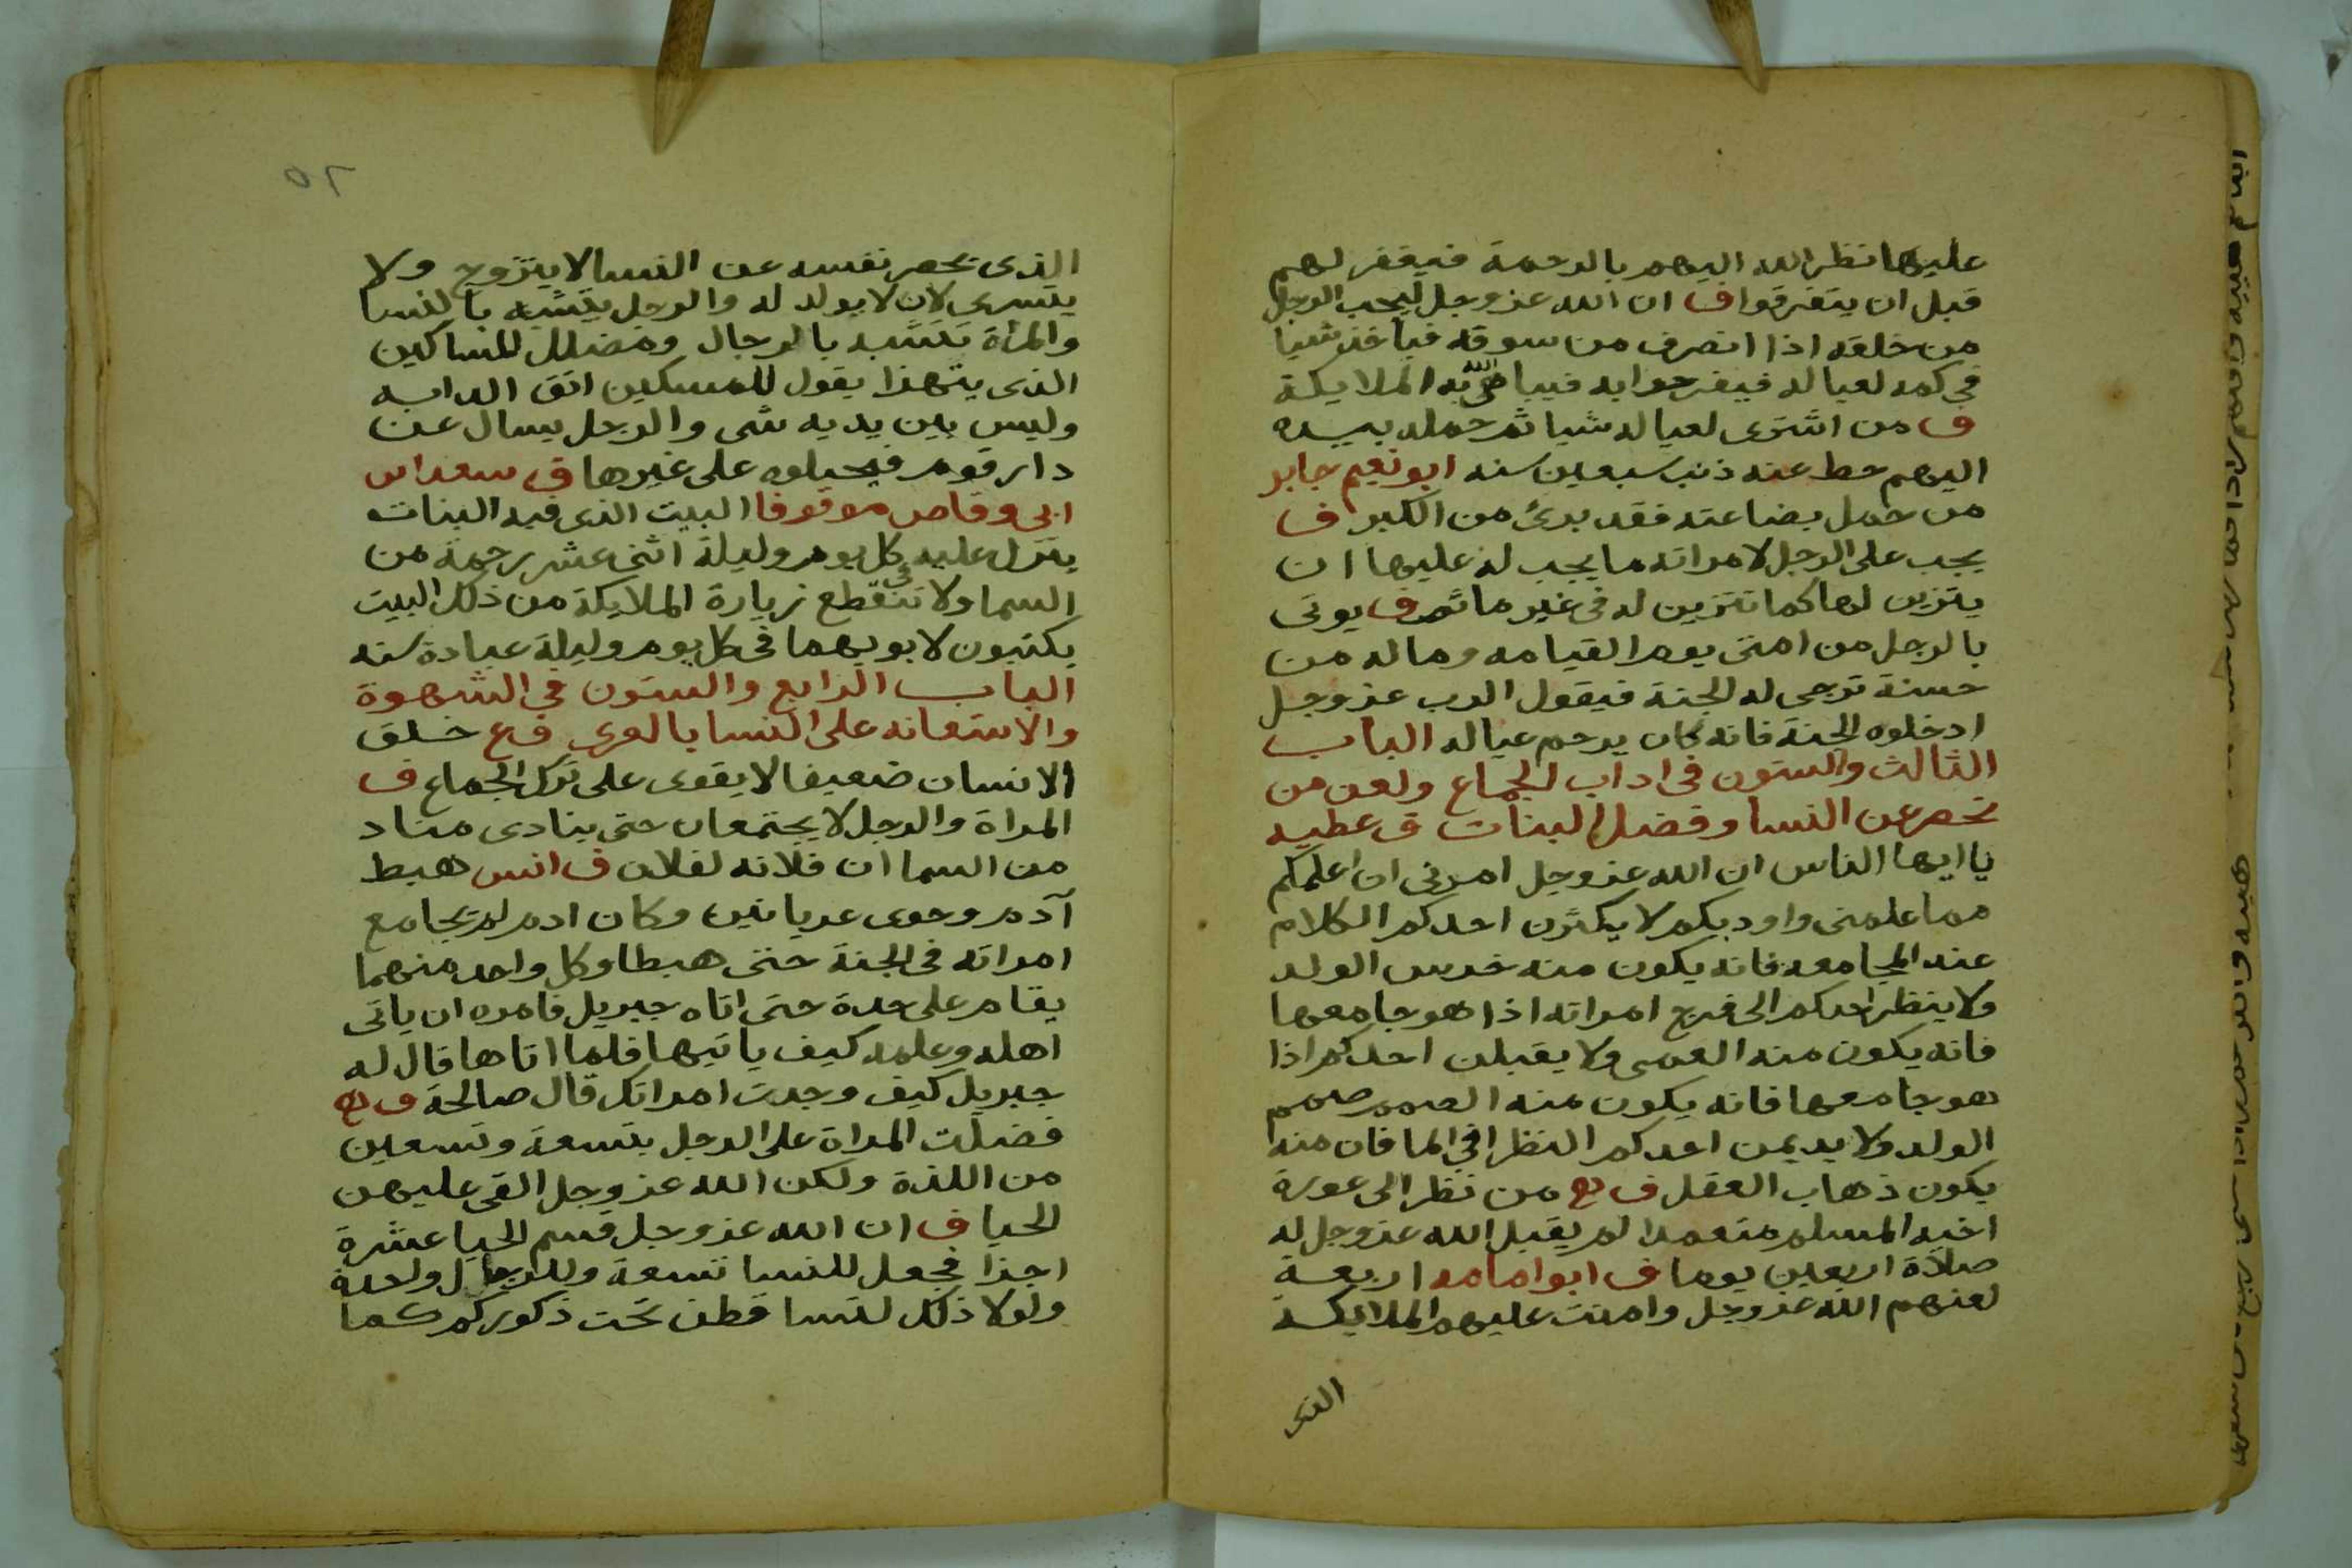 عليها نظر الله اليهم بالرحمة فيغفر لهم
قبل ان يتفرقوا ف ان الله عز وجل ليحب الرجل
من خلقه اذا انصرف من سوقه فياخذ شيا
في كمه لعياله فيفرحوا به فيباهي الله به الملايكة
ف من اشترى لعياله شيا ثم حمله بيده
اليهم حط عنه ذنب سبعين سنه ابو نعيم جابر
من حمل بضاعته فقد برئ من الكبر ف
يجب على الرجل لامراته ما يجب له عليها ان
يتزين لها كما تتزين له في غير ماثم ف يوتى
بالرجل من امتى يوم القيامه وماله من
حسنة ترجى له الجنة فيقول الرب عز وجل
ادخلوه الجنة فانه كان يرحم عياله الباب
الثالث والستون في اداب الجماع ولعن من
تحصر عن النسا وفضل البنات ق عطيه
يا ايها الناس ان الله عز وجل امرني ان اعلمكم
مما علمنى واودبكم لا يكثرن احدكم الكلام
عند المجامعه فانه يكون منه خرس الولد
ولا ينظر احدكم الى فرج امراته اذا هو جامعها
فانه يكون منه العمى ولا يقبلن احدكم اذا
هو جامعها فانه يكون منه الصمم صمم
الولد ولا يديمن احدكم النظر في الما فان منه
يكون ذهاب العقل ف من نظر الى عورة
اخيه المسلم متعمدا لم يقبل الله عز وجل له
صلاة اربعين يوما ف ابو امامه اربعة
لعنهم الله عز وجل وامنت عليهم الملايكة
الذي
٦٥
الذى يحصر نفسه عن النسا لا يتزوج ولا
يتسرى لان لا يولد له والرجل يتشبه بالنسا
والمرأة تتشبه بالرجال ومضلل المساكين
الذى يتهذا يقول للمسكين اتق الدابه
وليس بين يديه شى والرجل يسال عن
دار قوم فيحيلوه على غيرها ق سعد ابن
ابى وقاص موقوفا البيت الذى فيه البنات
ينزل عليه كل يوم وليلة اثنى عشر رحمة من
السما ولا تنقطع زيارة الملايكة من ذلك البيت
يكتبون لابويهما في كل يوم وليلة عبادة سنه
الباب الرابع والستون في الشهوة
والاستعانه على النسا بالعرى ق ع خلق
الانسان ضعيفا لا يقوى على ترك الجماع ف
المراة والرجل لا يجتمعان حتى ينادى مناد
من السما ان فلانه لفلان ف انس هبط
آدم وحوى عريانين وكان ادم لم يجامع
امراته في الجنة حتى هبطا وكل واحد منهما
يقام على حدة حتى اتاه جبريل فامره ان ياتى
اهله وعلمه كيف ياتيها فلما اتاها قال له
جبريل كيف وجدت امراتك قال صالحة ف
فضلت المراة على الرجل بتسعة وتسعين
من اللذة ولكن الله عز وجل القى عليهن
الحيا ف ان الله عز وجل قسم الحيا عشرة
اجزا فجعل للنسا تسعة وللرجال واحدة
ولولا ذلك لتساقطن تحت ذكوركم كما